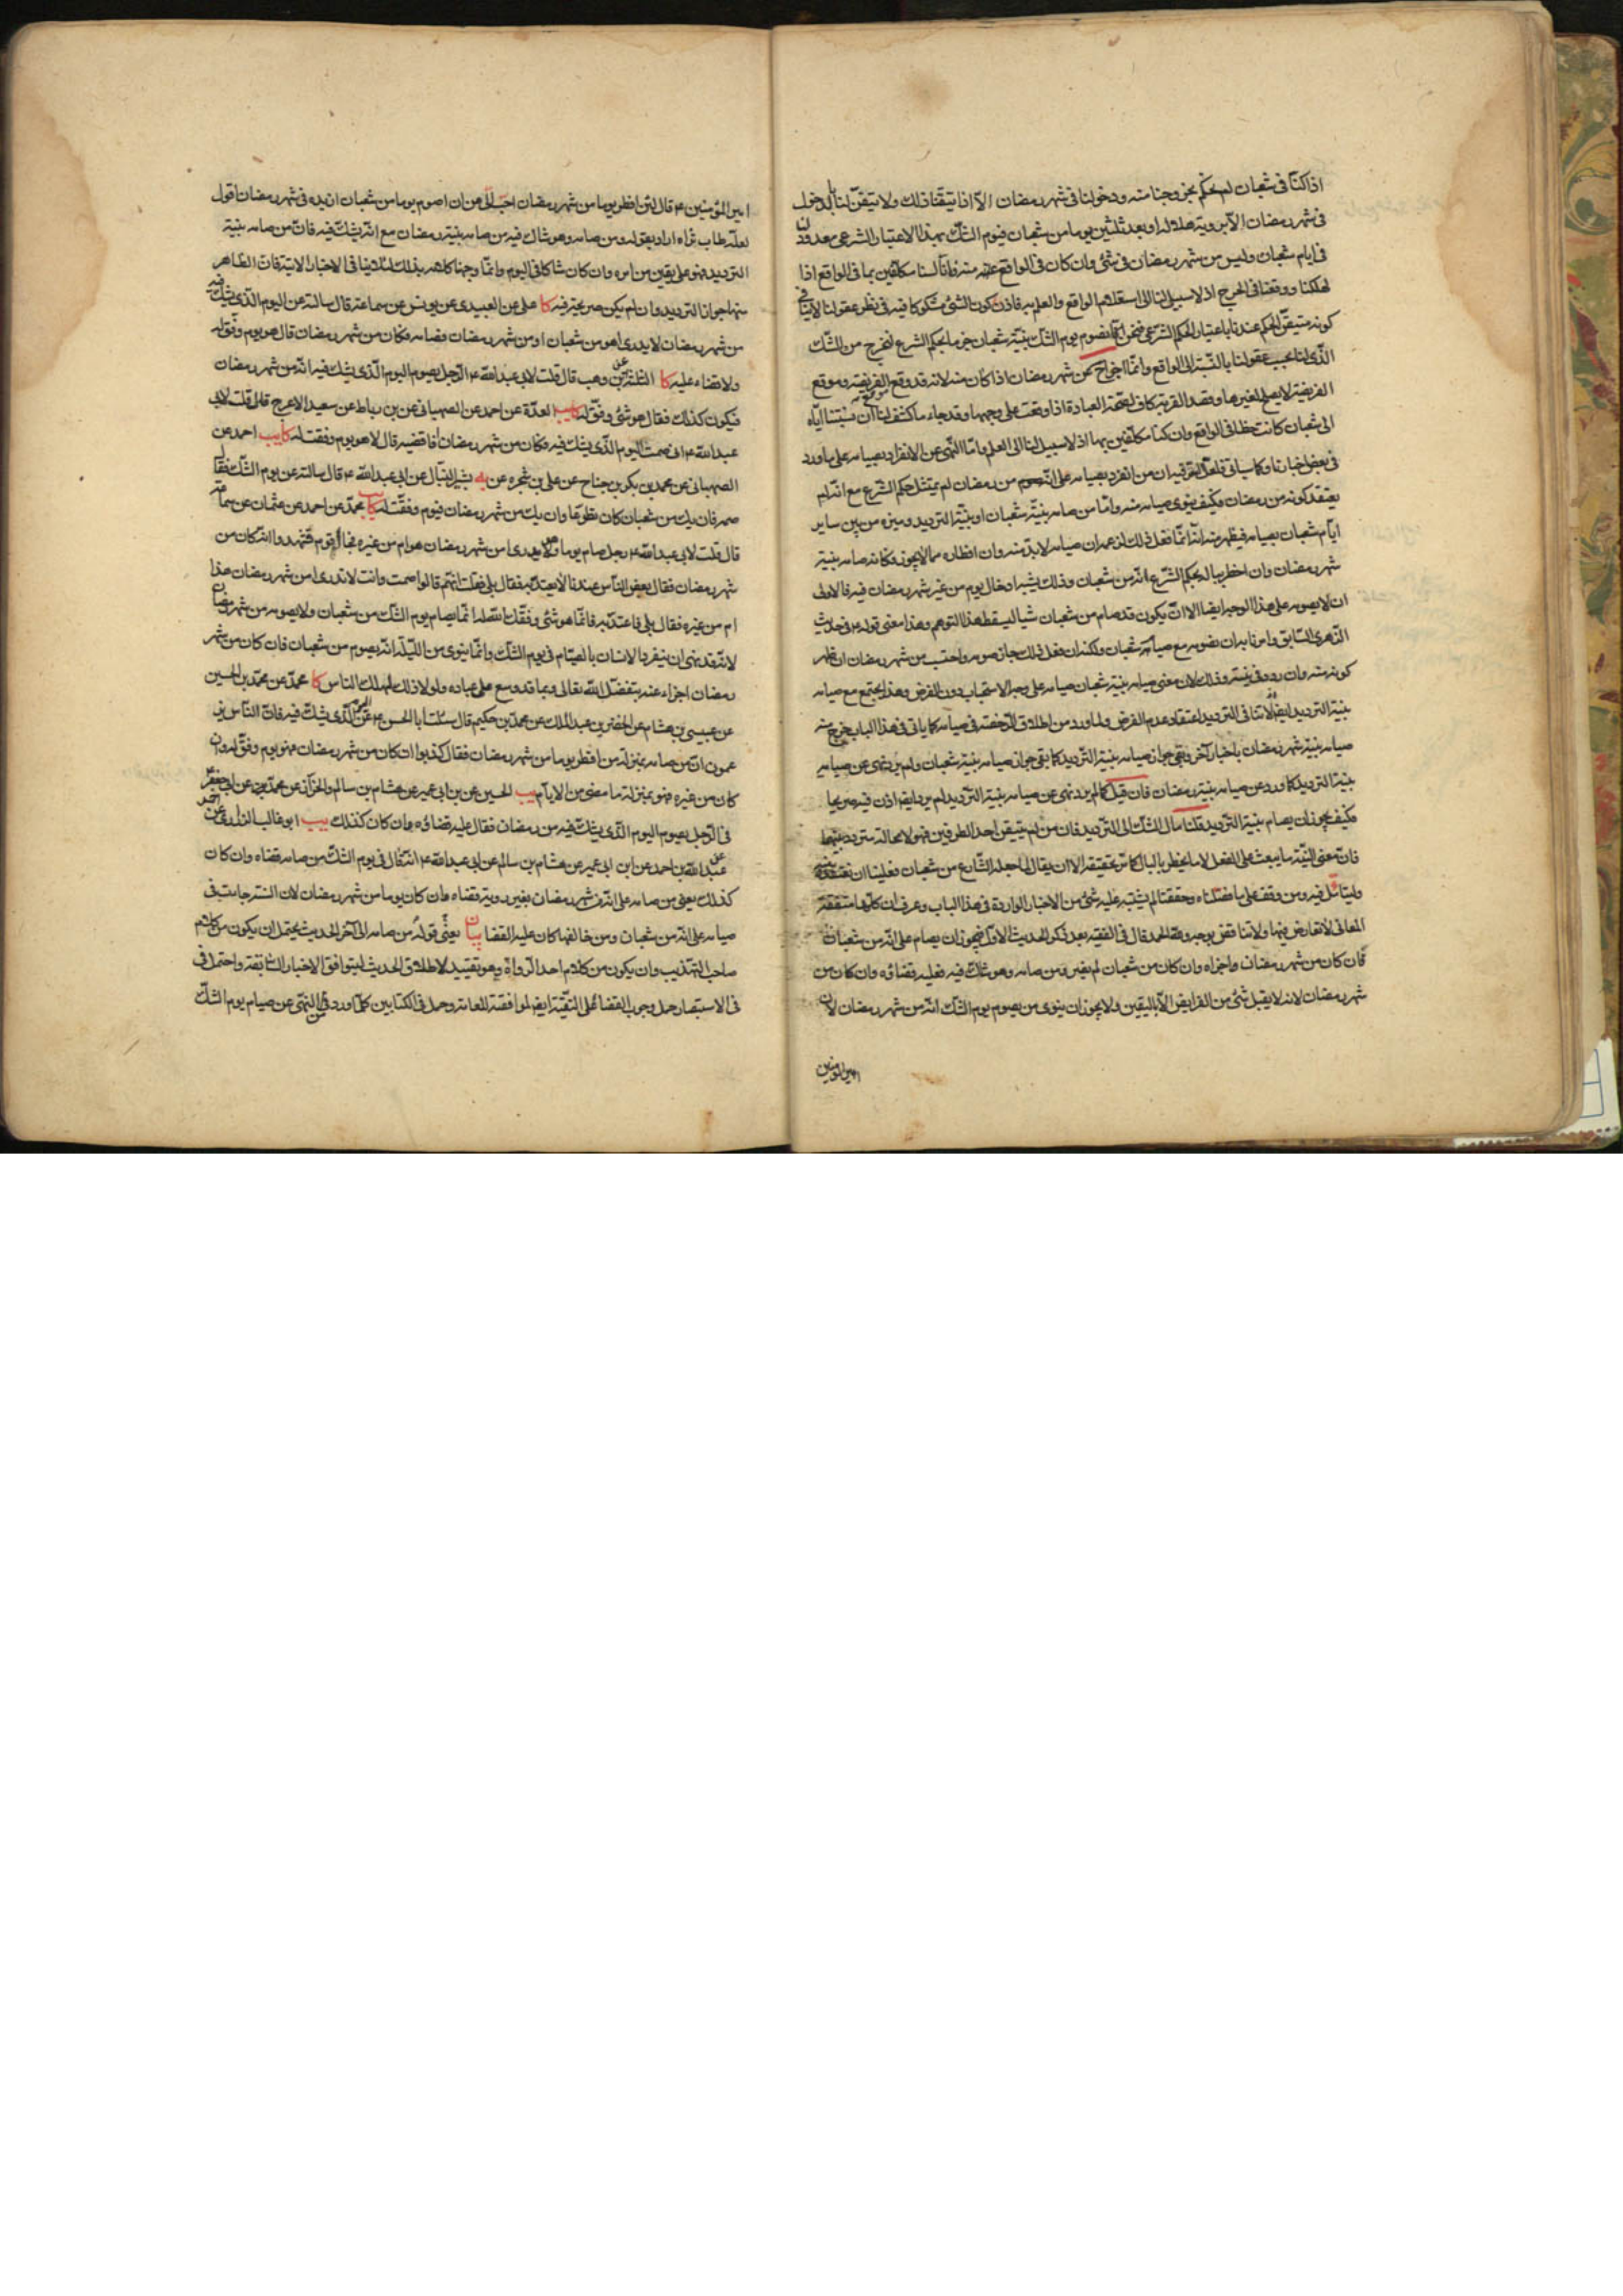 اذا كنا فى شعبان لم يحكم بخروجنا منه ودخولنا فى شهر رمضان الا اذا تيقنا ذلك ولا يتيقن لنا الدخول
فى شهر رمضان الا برويه هلاله او بعد ثلثين يوما من شعبان فيوم الشك بهذا الاعتبار الشرعى معدود
فى ايام شعبان وليس من شهر رمضان فى شئ وان كان فى الواقع منه فانا لسنا مكلفين بما فى الواقع اذا
لهلكنا ووقعنا فى الحرج اذ لا سبيل لنا الى استعلام الواقع والعلم به فاذن يكون الشئ مشكوكا فيه فى نظر عقولنا لا ينافى
كونه متيقن الحكم عندنا باعتبار الحكم الشرعى فنحن انما نصوم يوم الشك بنية شعبان جزما بحكم الشرع لنخرج من الشك
الذى لنا بحسب عقولنا بالنسبة الى الواقع وانما اجزاء عن شهر رمضان اذا كان منه لانه قد وقع الفريضة وموقع
الفريضة لا يصلح لغيرها وقصد القربة كاف لصحة العبادة اذا وقعت على وجهها وقد جاء ما كشف لنا ان نسبتنا اياه
الى شعبان كانت خطا فى الواقع وان كنا مكلفين بها اذ لا سبيل لنا الى العلم واما النهى عن الانفراد بصيامه على ما ورد
فى بعض اخبارنا وكما سياتى فلعل السر فيه ان من انفرد بصيامه على انه من رمضان لم يمتثل حكم الشرع مع انه لم
يعتقد كونه من رمضان فكيف ينوى صيامه منه واما من صامه بنية شعبان او بنية الترديد وميزه من بين ساير
ايام شعبان بصيامه فيظهر منه انه انما فعل ذلك لزعمه ان صيامه لا بد منه وان افطاره مما لا يجوز فكانه صامه بنية
شهر رمضان وان اخطر بباله بحكم الشرع انه من شعبان وذلك يشبه ادخال يوم من غير شهر رمضان فيه فالاولى
ان لا يصومه على هذا الوجه ايضا الا ان يكون قد صام من شعبان شيئا ليسقط هذا التوهم وهذا معنى قوله ع فى حديث
الزهرى السابق وامرنا به ان نصومه مع صيام شعبان ولكنه ان فعل ذلك جاز صومه واحتسب من شهر رمضان ان ظهر
كونه منه وان ردد فى نيته وذلك لان معنى صيامه بنية شعبان صيامه على وجه الاستحباب دون الفرض وهذا يجتمع مع صيامه
بنية الترديد ايضا لاننا فى الترديد اعتقاد عدم الفرض ولما ورد من اطلاق الرخصة فى صيامه كما ياتى فى هذا الباب خرج منه
صيامه بنية شهر رمضان باخبار آخر وبقى جواز صيامه بنية الترديد كما بقى جواز صيامه بنية شعبان ولم يرد نهى عن صيامه
بنية الترديد كما ورد عن صيامه بنية رمضان فان قيل كما لم يرد نهى عن صيامه بنية الترديد لم يرد ايضا اذن فيه صريحا
فكيف يجوز ان يصام بنية الترديد قلنا مآل الشك الى الترديد فان من لم يتيقن احد الطرفين فهو لا محالة متردد بينهما
فان معنى النية ما يبعث على الفعل لا ما يخطر بالبال كما مر تحقيقه الا ان يقال لما جعله الشارع من شعبان فعلينا ان نعتقده
وليتامل فيه ومن وقف على ما فصلناه وحققناه لم يشتبه عليه شئ من الاخبار الواردة فى هذا الباب وعرف ان كلها متفقة
المعانى لا تعارض فيها ولا تناقض بوجه ولله الحمد قال فى الفقيه بعد ذكر الحديث الاول فيجوز ان يصام على انه من شعبان
فان كان من شهر رمضان واجزاه وان كان من شعبان لم يضره ومن صامه وهو شاك فيه فعليه قضاؤه وان كان من
شهر رمضان لانه لا يقبل شئ من الفرايض الا باليقين ولا يجوز ان ينوى من يصوم يوم الشك انه من شهر رمضان لان
امير المؤمنين
امير المؤمنين ع قال لئن افطر يوما من شهر رمضان احب الى من ان اصوم يوما من شعبان ازيده فى شهر رمضان اقول
لعله طاب ثراه اراد بقوله ومن صامه وهو شاك فيه من صامه بنية رمضان مع انه يشك فيه فان من صامه بنية
الترديد فهو على يقين من امره وان كان شاكا فى اليوم وانما وجهنا كلامه بذلك لئلا ينافى الاخبار الاتية فان الظاهر
منها جواز الترديد وان لم يكن صريحة فيه كا على عن العبيدى عن يونس عن سماعة قال سالته عن اليوم الذى يشك فيه
من شهر رمضان لا يدرى اهو من شعبان او من شهر رمضان فصامه فكان من شهر رمضان قال هو يوم وفق له
ولا قضاء عليه كا الثلثة عن ابن وهب قال قلت لابى عبد الله ع الرجل يصوم اليوم الذى يشك فيه انه من شهر رمضان
فيكون كذلك فقال هو شئ وفق له كا يب العدة عن احمد عن الصهبانى عن بن رباط عن سعيد الاعرج قال قلت لابى
عبد الله ع انى صمت اليوم الذى يشك فيه فكان من شهر رمضان افاقضيه قال لا هو يوم وفقت له كا يب احمد عن
الصهبانى عن محمد بن بكر بن جناح عن على بن شجره عن يه بشير النبال عن ابى عبد الله ع قال سالته عن يوم الشك فقال
صمه فان يك من شعبان كان تطوعا وان يك من شهر رمضان فيوم وفقت له كا يب محمد عن احمد عن عثمان عن سماعة
قال قلت لابى عبد الله ع رجل صام يوما وهو لا يدرى امن شهر رمضان هو ام من غيره فجاء قوم فشهدوا انه كان من
شهر رمضان فقال بعض الناس عندنا لا يعتد به فقال بلى فقلت انهم قالوا صمت وانت لا تدرى امن شهر رمضان هذا
ام من غيره فقال بلى فاعتد به فانما هو شئ وفقك الله له انما يصام يوم الشك من شعبان ولا يصومه من شهر رمضان
لانه قد نهى ان ينفرد الانسان بالصيام فى يوم الشك وانما ينوى من الليلة انه يصوم من شعبان فان كان من شهر
رمضان اجزاء عنه بتفضل الله تعالى وبما قد وسع على عباده ولولا ذلك لهلك الناس كا محمد عن محمد بن الحسين
عن عيسى بن هشام عن الخضر بن عبد الملك عن محمد بن حكيم قال سئلت ابا الحسن ع عن اليوم الذى يشك فيه فان الناس يز
عمون ان من صامه بمنزلة من افطر يوما من شهر رمضان فقال كذبوا ان كان من شهر رمضان فهو يوم وفق له وان
كان من غيره فهو بمنزلة ما مضى من الايام يب الحسين عن بن ابى عمير عن هشام بن سالم والخزاز عن محمد عن ابى جعفر
فى الرجل يصوم اليوم الذى يشك فيه من رمضان فقال عليه قضاؤه وان كان كذلك يب ابو غالب الزرارى عن احمد عن
عبد الله بن احمد عن ابن ابى عمير عن هشام بن سالم عن ابى عبد الله ع انه قال فى يوم الشك من صامه قضاه وان كان
كذلك يعنى من صامه على انه من شهر رمضان بغير روية قضاه وان كان يوما من شهر رمضان لان السنة جاءت فى
صيامه على انه من شعبان ومن خالفها كان عليه القضا بيان يعنى قوله من صامه الى آخر الحديث يحتمل ان يكون من كلام
صاحب التهذيب وان يكون من كلام احد الرواة وهو تقييد لاطلاق الحديث ليتوافق الاخبار السابقة واحتمل فى
فى الاستبصار حمل وجوب القضا على التقية ايضا لموافقته للعامة وحمل فى الكتابين كلما ورد فى النهى عن صيام يوم الشك